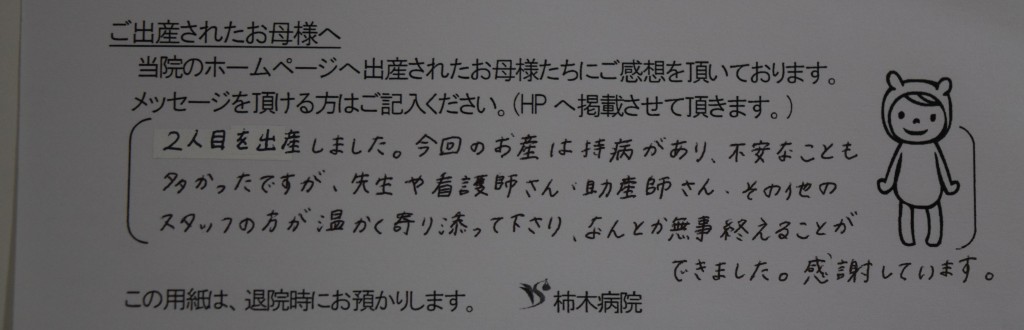 ご出産されたお母様へ
当院のホームページへ出産されたお母様たちにご感想を頂いております。
メッセージを頂ける方はご記入ください。(HPへ掲載させて頂きます。)
2人目を出産しました。今回のお産は持病があり、不安なことも
多かったですが、先生や看護師さん・助産師さん・その他の
スタッフの方が温かく寄り添って下さり、なんとか無事終えることが
できました。感謝しています。
この用紙は、退院時にお預かりします。 柿木病院